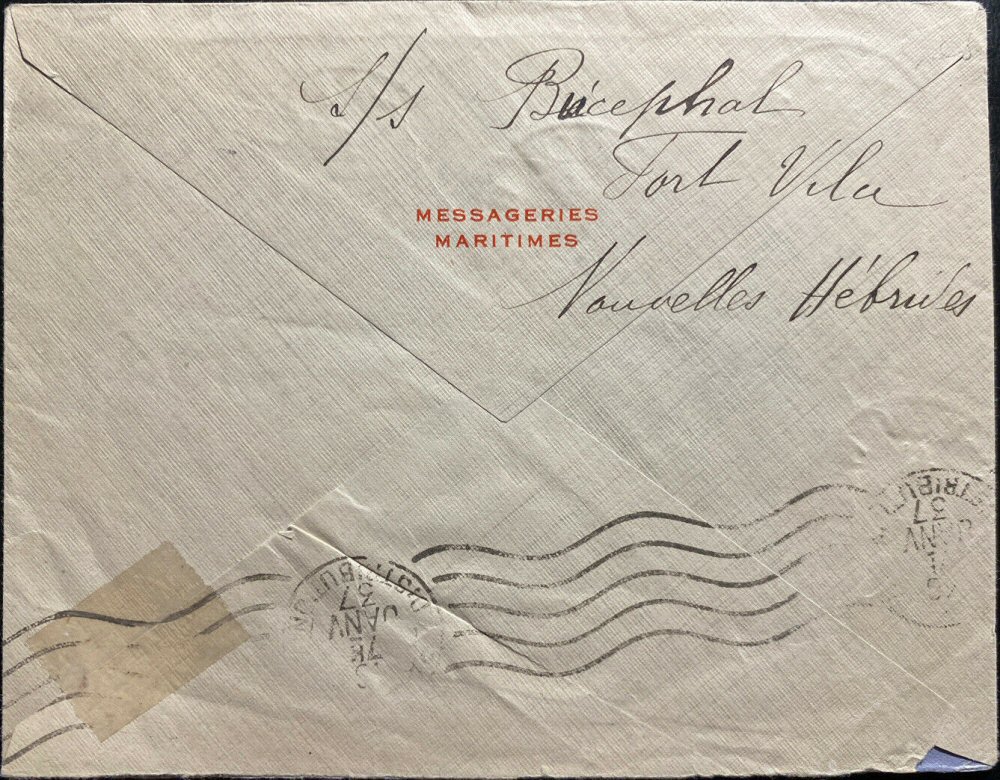 S/s Bucephal
Port Vila
MESSAGERIES
MARITIMES
Nouvelles Hébrides
DISTRIBUTION
JANV
37
JANV
37